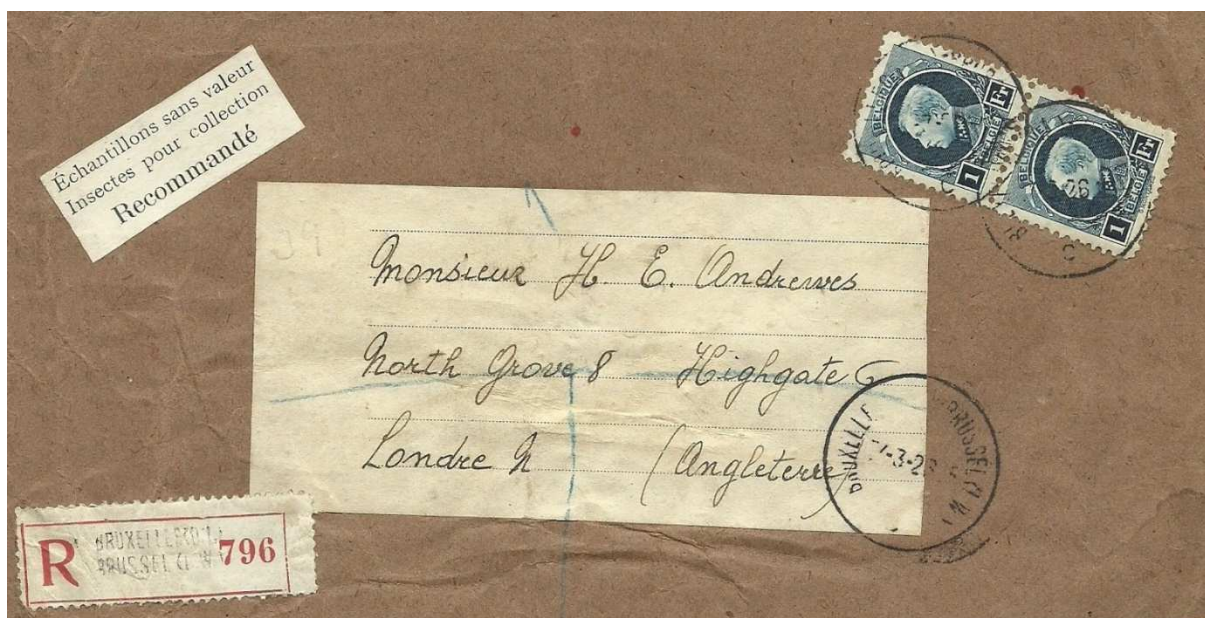 Échantillons sans valeur
Insectes pour collection
Recommandé
BELGIQUE
1 BELGIË F.
BELGIQUE
1 BELGIË F.
Monsieur H. E. Andrewes
North Grove 8 Highgate 6
Londre N (Angleterre)
BRUXELLE
BRUSSEL
-3-2
R
BRUSSEL
796